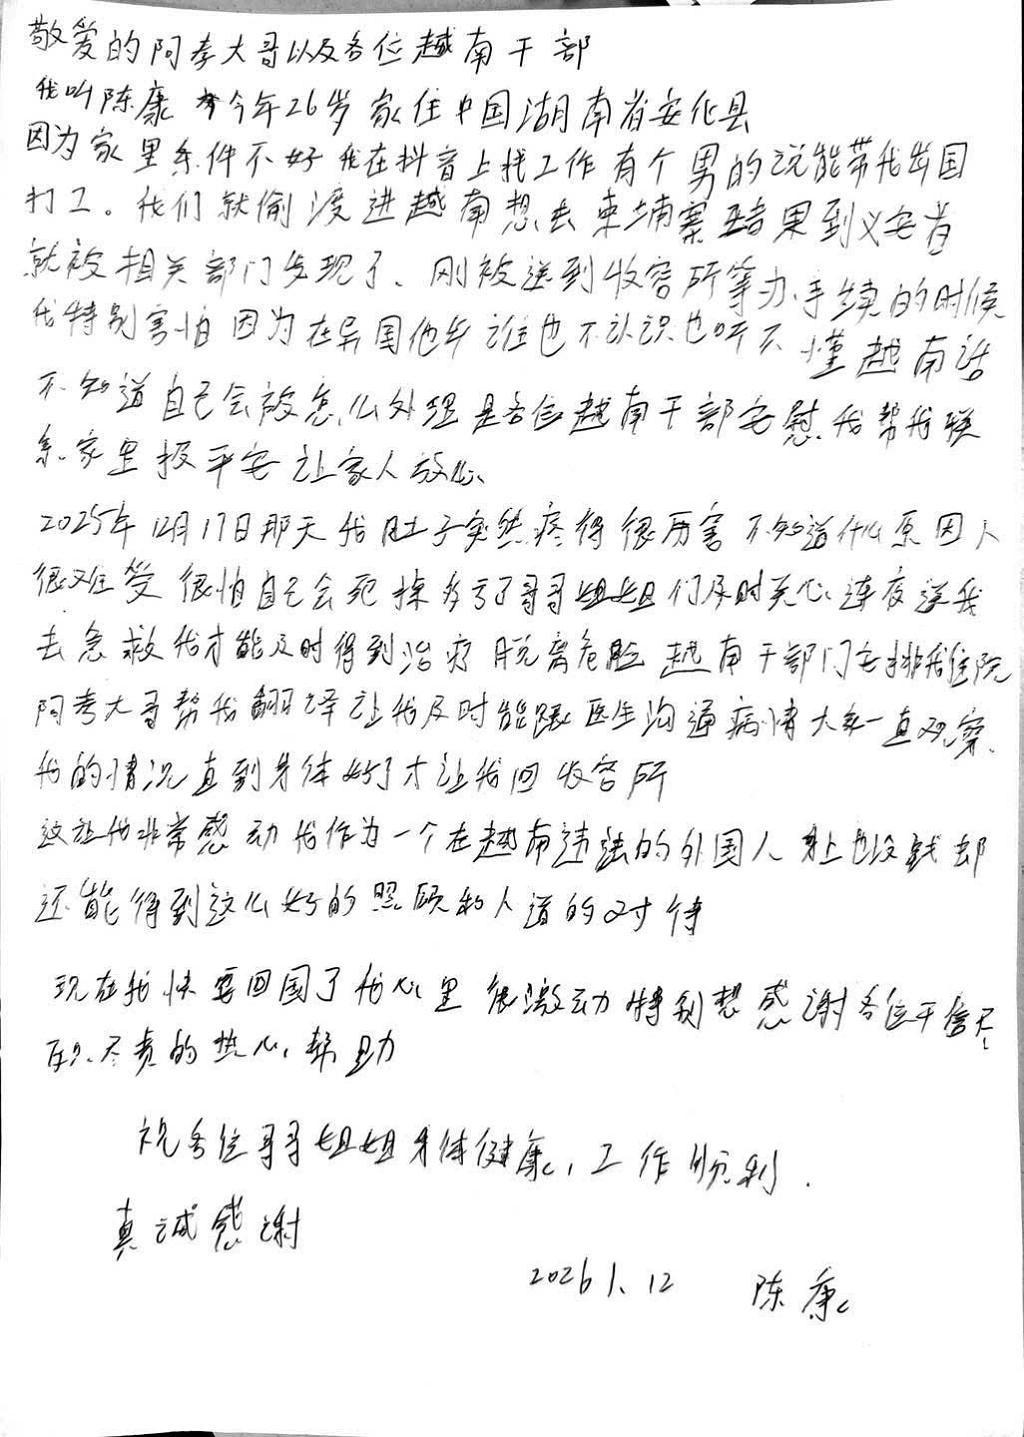 敬爱的阿孝大哥以及各位越南干部
我叫陈康 今年26岁 家住中国湖南省安化县
因为家里条件不好 我在抖音上找工作 有个男的说能带我出国
打工。我们就偷渡进越南想去柬埔寨 结果到义安省
就被相关部门发现了、刚被送到收容所等办手续的时候
我特别害怕 因为在异国他乡 谁也不认识 也听不懂越南话
不知道自己会被怎么处理 是各位越南干部安慰我 帮我联
系家里报平安 让家人放心、
2025年12月17日那天 我肚子突然疼得很厉害 不知道什么原因 人
很难受 很怕自己会死掉 多亏了哥哥姐姐们及时关心 连夜送我
去急救 我才能及时得到治疗 脱离危险 越南干部门安排我住院
阿孝大哥帮我翻译 让我及时能跟医生沟通病情 大家一直观察
我的情况 直到身体好了才让我回收容所
这让我非常感动 我作为一个在越南违法的外国人 身上也没钱 却
还能得到这么好的照顾和人道的对待
现在我快要回国了 我心里很激动 特别想感谢各位干部尽
职尽责的热心帮助
祝各位哥哥姐姐身体健康, 工作顺利.
真诚感谢
2026 1、12 陈康